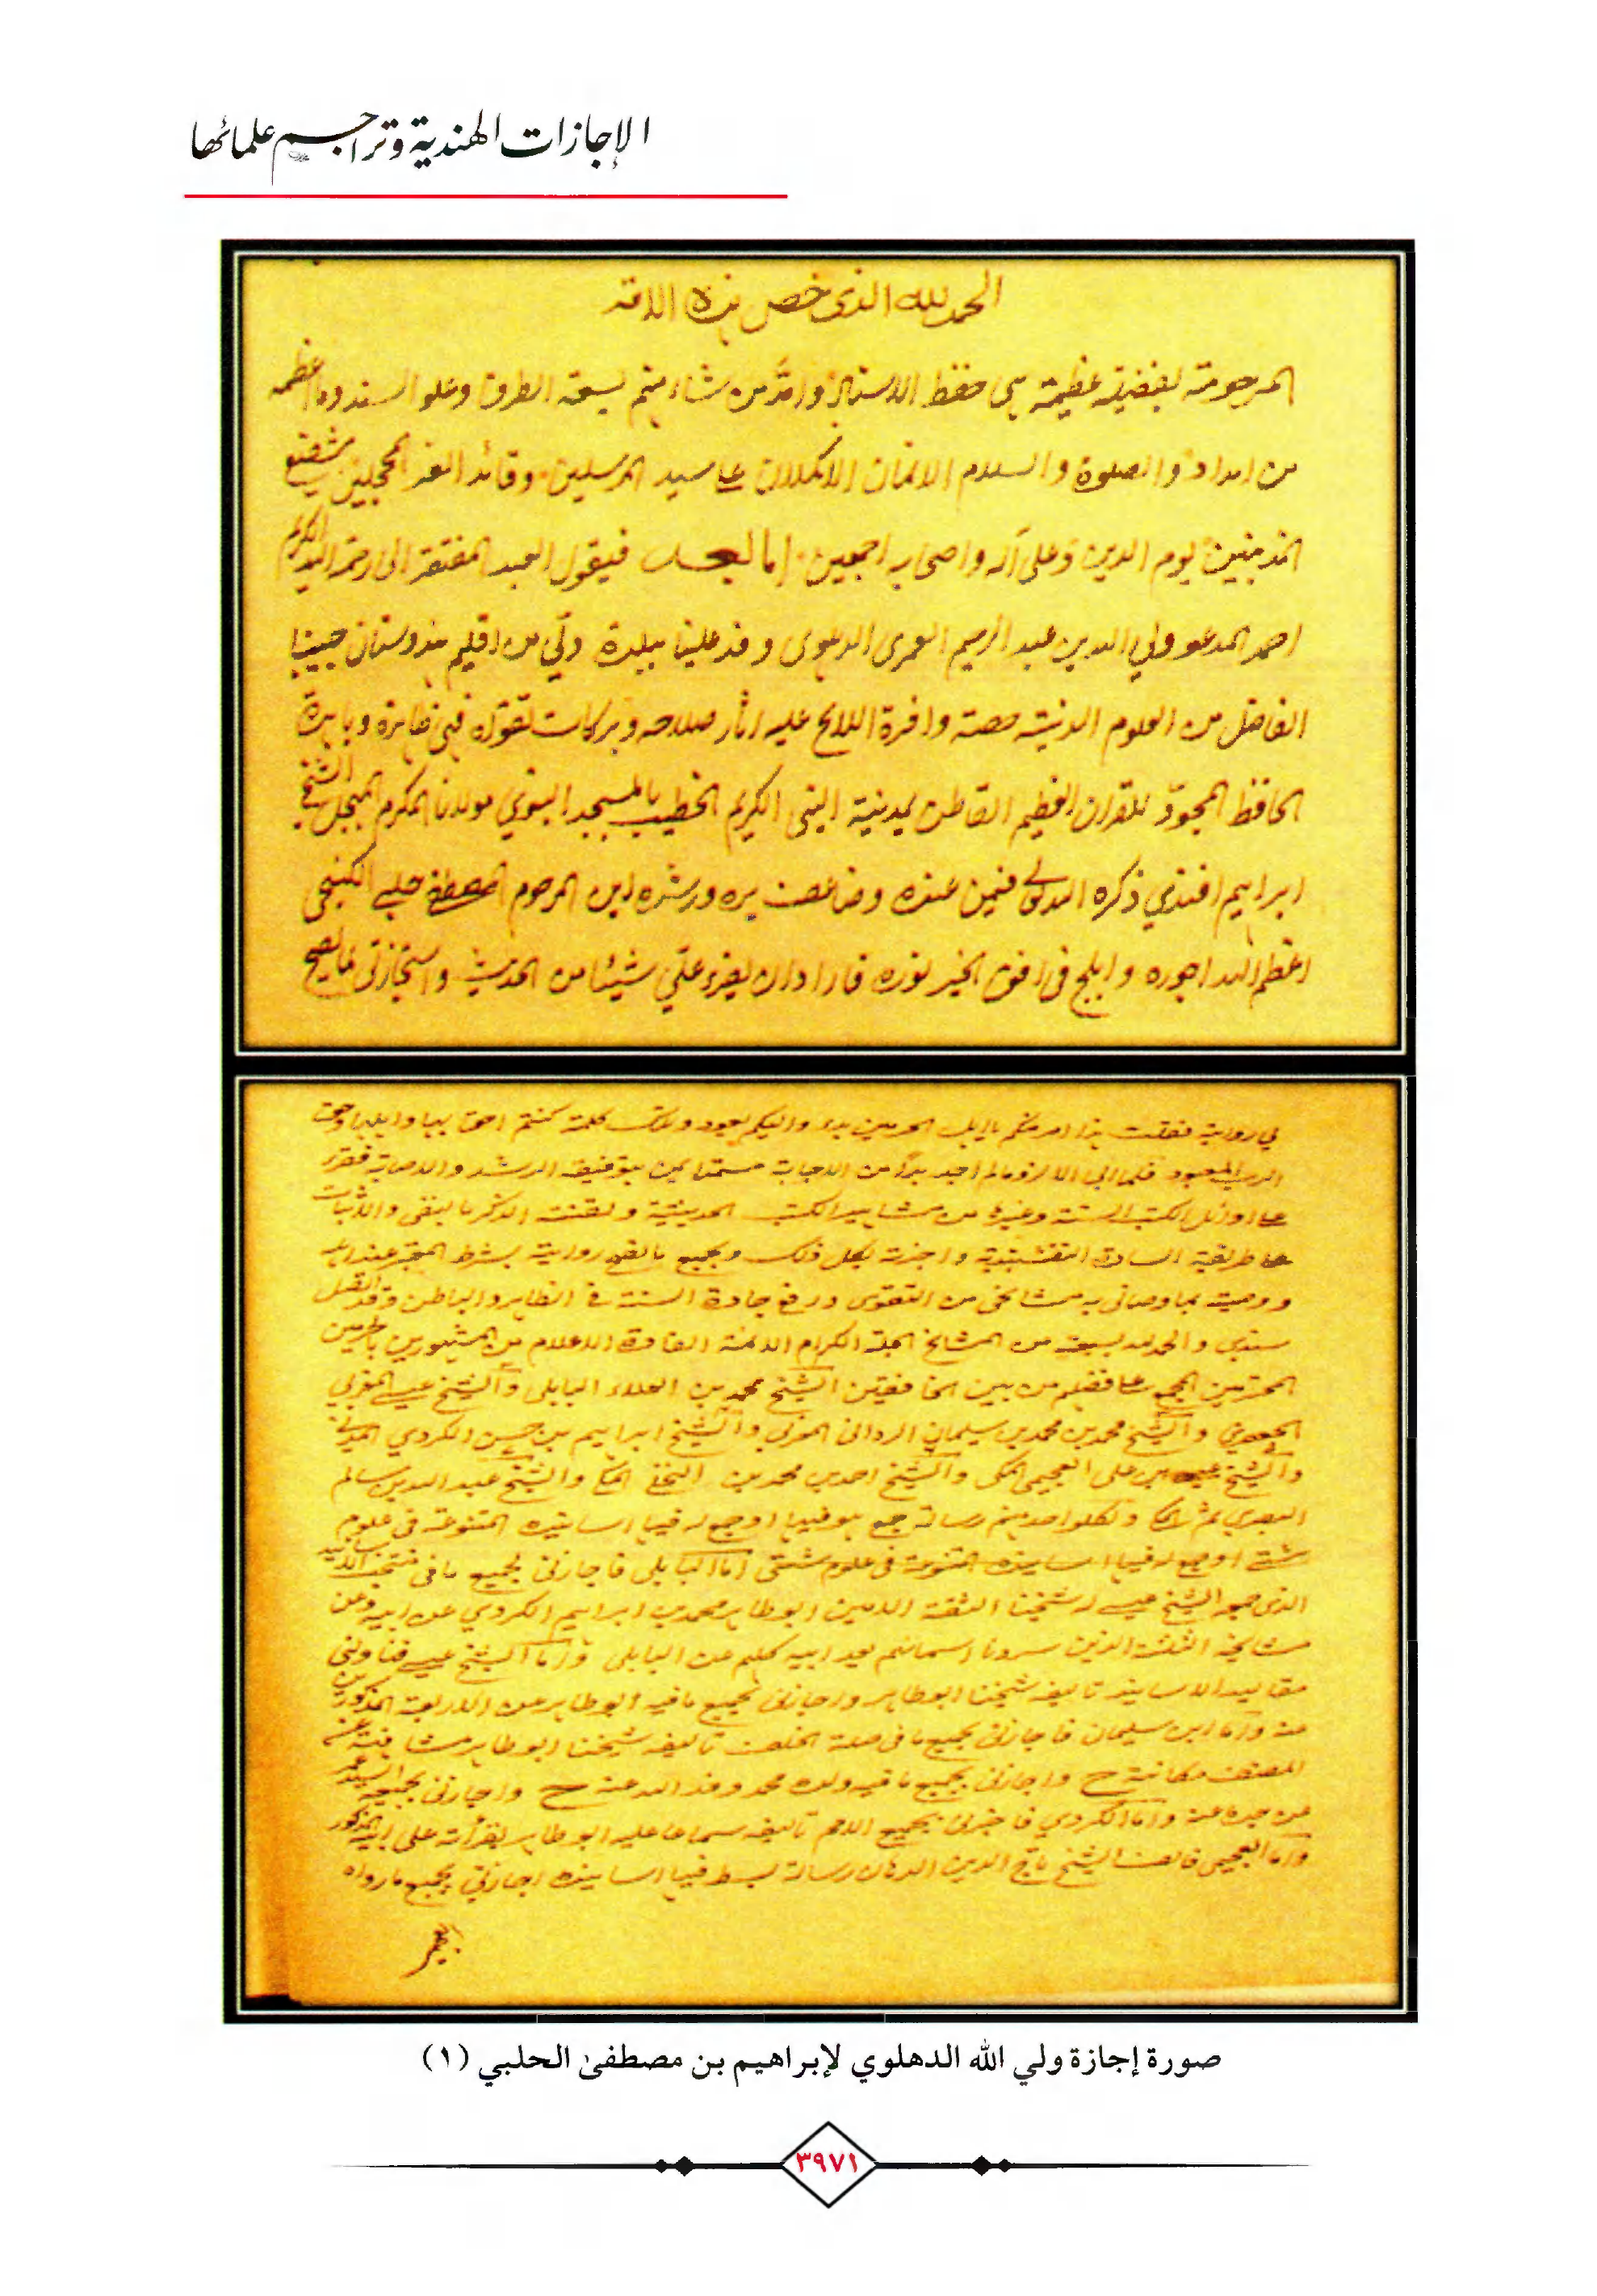 الإجازات الهندية وتراجم علمائها
الحمد لله الذى خص بهذه الامة
المرحومة بفضيلة عظيمة هى حفظ الاسناد وامد من شاء منهم بسعة الطرق وعلو السند وما اعظمه
من امداد والصلوة والسلام الاتمان الاكملان على سيد المرسلين وقائد الغر المحجلين شفيع
المذنبين يوم الدين وعلى آله واصحابه اجمعين اما بعد فيقول العبد المفتقر الى رحمة الله الكريم
احمد المدعو ولي الله بن عبد الرحيم العمرى الدهلوى وفد علينا ببلدة دلي من اقليم هندوستان حبيبنا
الفاضل من العلوم الدينية حصة وافرة اللائح عليه اثار صلاحه وبركات تقواه فهى ظاهرة وباهرة
الحافظ المجود للقران العظيم القاطن بمدينة النبى الكريم الخطيب بالمسجد النبوي مولانا المكرم المبجل الشيخ
ابراهيم افندي ذكره الله تعالى فيمن عنده وضاعف بره ورشده ابن المرحوم المصطفى حلبي
اعظم الله اجوره وابلج فى افق الخير نوره فاراد ان يقرء علي شيئا من الحديث واستجازنى لما يصح
لي رواية فقلت هذا امر منكم يا اهل الحرمين بدء واليكم يعود وتلك كلمة كنتم احق بها واهلها وحق
الرب المعبود فلما ابى الا لزوما لم اجد بدا من الاجابة مستمدا ممن بتوفيقه الرشد والاصابة فقرء
على اوائل الكتب الستة وغيرها من مشاهير الكتب الحديثية ولقنته الذكر بالنفى والاثبات
على طريقة السادة النقشبندية واجزت لكل ذلك وبجميع ما تصح روايته بشرط المعتبر عند اهله
ووصيت بما وصانى به مشائخى من التقوى ورفع جادة السنة فى الظاهر والباطن وقد اتصل
سندي والحمد لله بسبعة من المشائخ الجلة الكرام الائمة القادة الاعلام من المشهورين بالحرمين
المحترمين المجمع على فضلهم من بين الخافقين الشيخ محمد بن العلاء البابلى والشيخ عيسى المغربي
الجعفري والشيخ محمد بن محمد بن سليمان الردانى المغربى والشيخ ابراهيم بن حسن الكردي المدنى
والشيخ حسن بن على العجيمى المكى والشيخ احمد بن محمد بن النخلى المكى والشيخ عبد الله بن سالم
البصري ثم المكى ولكل واحد منهم رسالة جمع هو فيها او جمع له فيها اسانيده المتنوعة فى علوم
شتى او جمع له فيها اسانيده المتنوعة فى علوم شتى اما البابلى فاجازنى بجميع ما فى منتخب الاسانيد
الذى جمعه الشيخ عيسى له شيخنا الثقة الامين ابو طاهر محمد بن ابراهيم الكردي عن ابيه وعن
مشائخه الثلثة الذين سردنا اسمائهم بعد ابيه كلهم عن البابلى واما الشيخ عيسى فناولنى
مقاليد الاسانيد تاليفه شيخنا ابو طاهر واجازنى بجميع ما فيه ابو طاهر عن الاربعة المذكورين
عنه واما ابن سليمان فاجازنى بجميع ما فى صلة الخلف تاليفه شيخنا ابو طاهر مشافهة عن
المصنف مكاتبة ح واجازنى بجميع ما فيه ولده محمد وفد الله عنه ح واجازنى بجميعه السيد عمر
عن جده عنه واما الكردي فاخبرنى بجميع الامم تاليفه سماعا عليه ابو طاهر بقرأته على ابيه المذكور
واما العجيمى فالف الشيخ تاج الدين الدهان رسالة بسط فيها اسانيده اجازنى بجميع ما رواه
صورة إجازة ولي الله الدهلوي لإبراهيم بن مصطفى الحلبي (١)
٣٩٧١